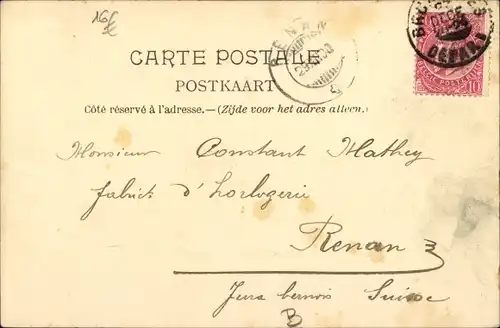 16€
CARTE POSTALE
POSTKAART
Côté réservé à l'adresse.—(Zijde voor het adres alleen.)
Monsieur Constant Mathey
fabrict d'horlogerie
Renan
Jura bernois Suisse
B
10
DEPART